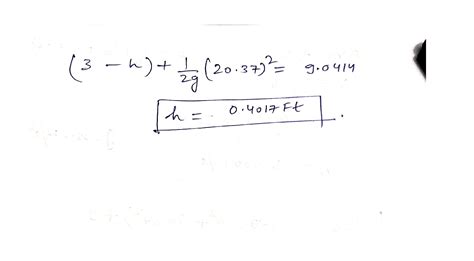 (3 - h) + 1/2g (20.37)² = 9.0414
h = 0.4017 Ft.